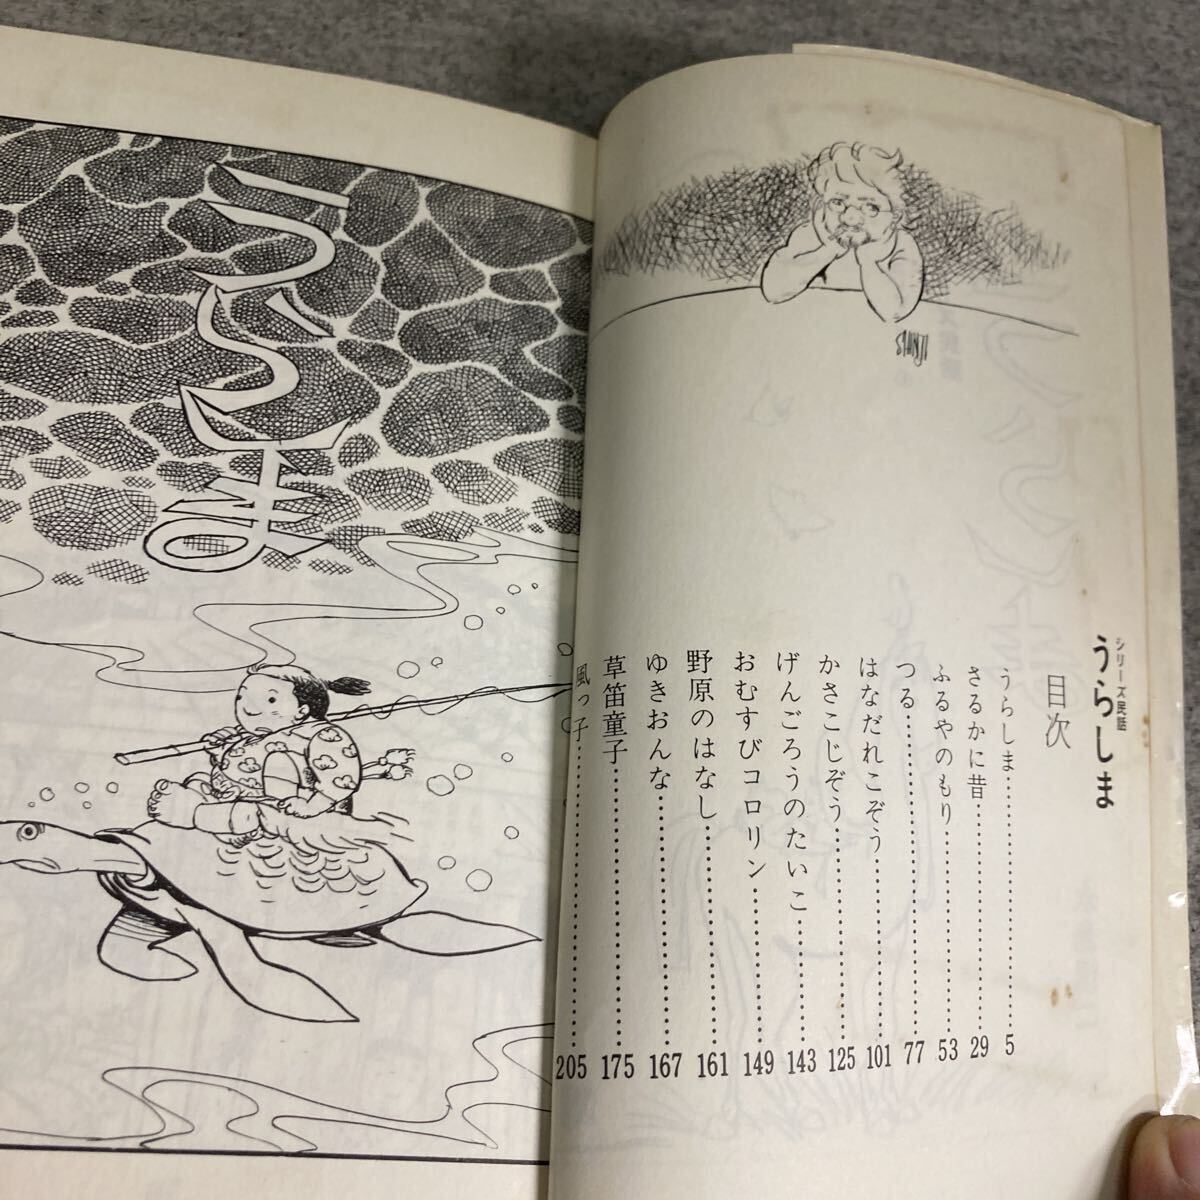 シリーズ民話
うらしま
目次
うらしま……………5
さるかに昔……………29
ふるやのもり……………53
つる……………77
はなだれこぞう……………101
かさこじぞう……………125
げんごろうのたいこ……………143
おむすびコロリン……………149
野原のはなし……………161
ゆきおんな……………167
草笛童子……………175
風っ子……………205
SHINJI
うらしま